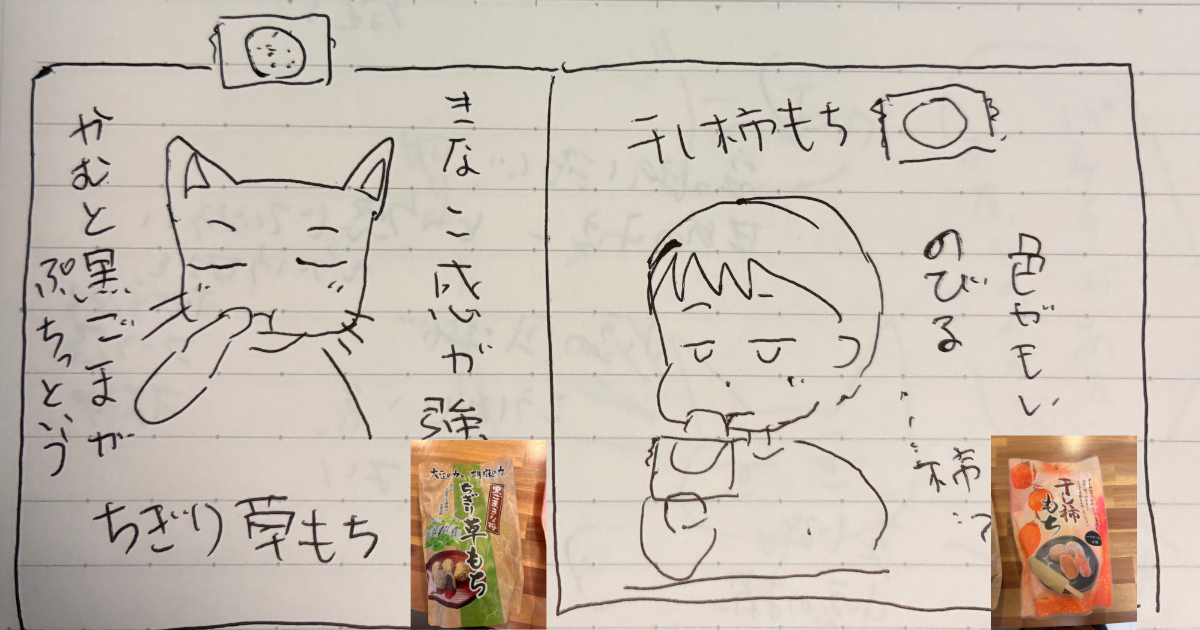 干し柿もち
色がもい
のびる
柿
きなこ感が強
かむと黒ごまが
ぷちっという
ちぎり草もち
大豆の力と胡麻の力
黒ごまきな粉
ちぎり草もち
干し柿もち